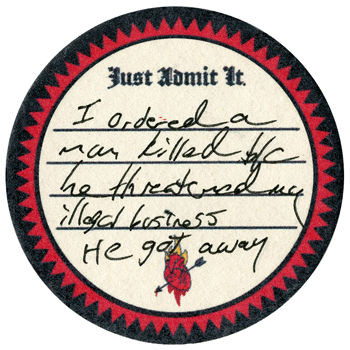 Just Admit It.
I ordered a
man killed b/c
he threatened my
illegal business
He got away